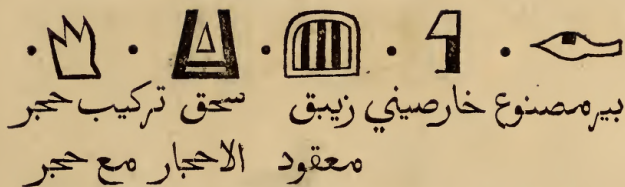 بير مصنوع خارصيني زيبق سحق تركيب حجر
معقود الاحجار مع حجر